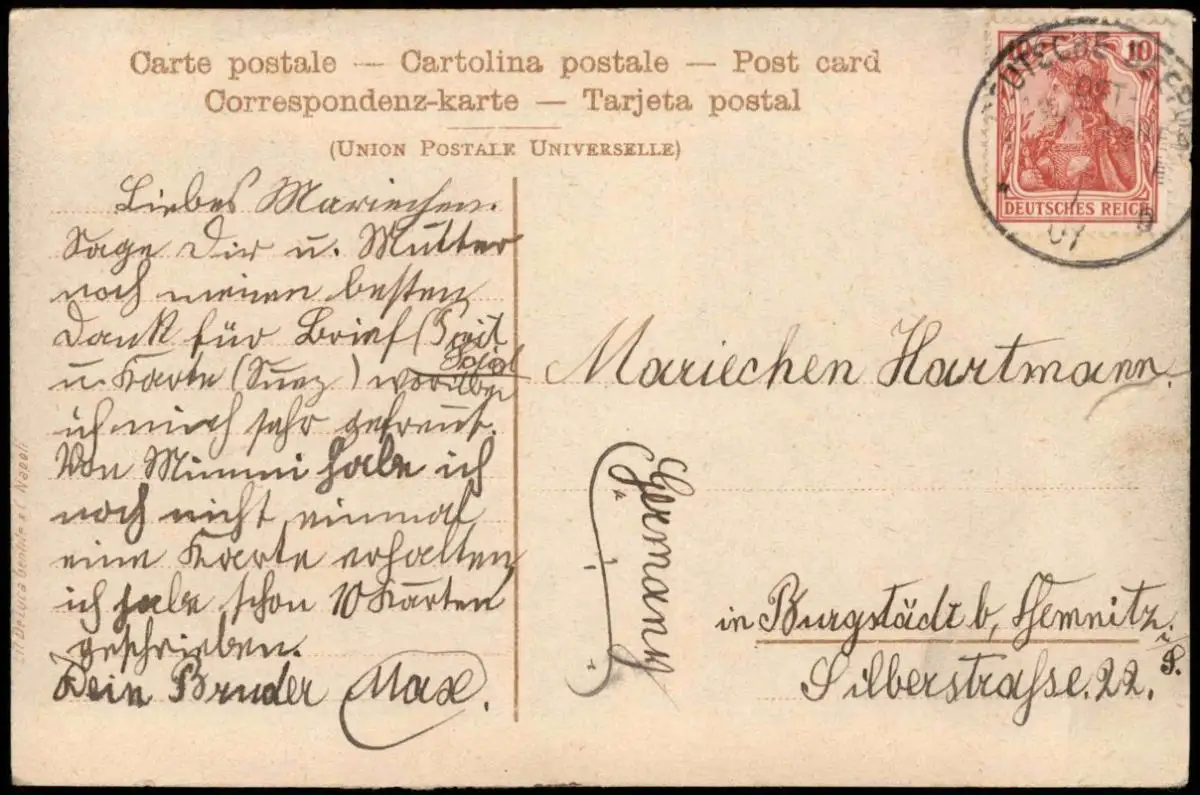 Carte postale — Cartolina postale — Post card
Correspondenz-karte — Tarjeta postal
(UNION POSTALE UNIVERSELLE)
Liebes Mariechen.
Sage Dir u. Mutter
noch meinen besten
Dank für Brief (Port
Said
u. Karte (Suez) worüber
ich mich sehr gefreut.
Von Mimmi habe ich
noch nicht einmal
eine Karte erhalten,
ich habe schon 10 Karten
geschrieben.
Dein Bruder Max.
Mariechen Hartmann.
Germany
in Burgstädt b, Chemnitz
i/S.
Silberstrasse. 22.
10 10
DEUTSCHES REICH
DEUTSCHE SEEPOST
OST-
07 D
Napoli